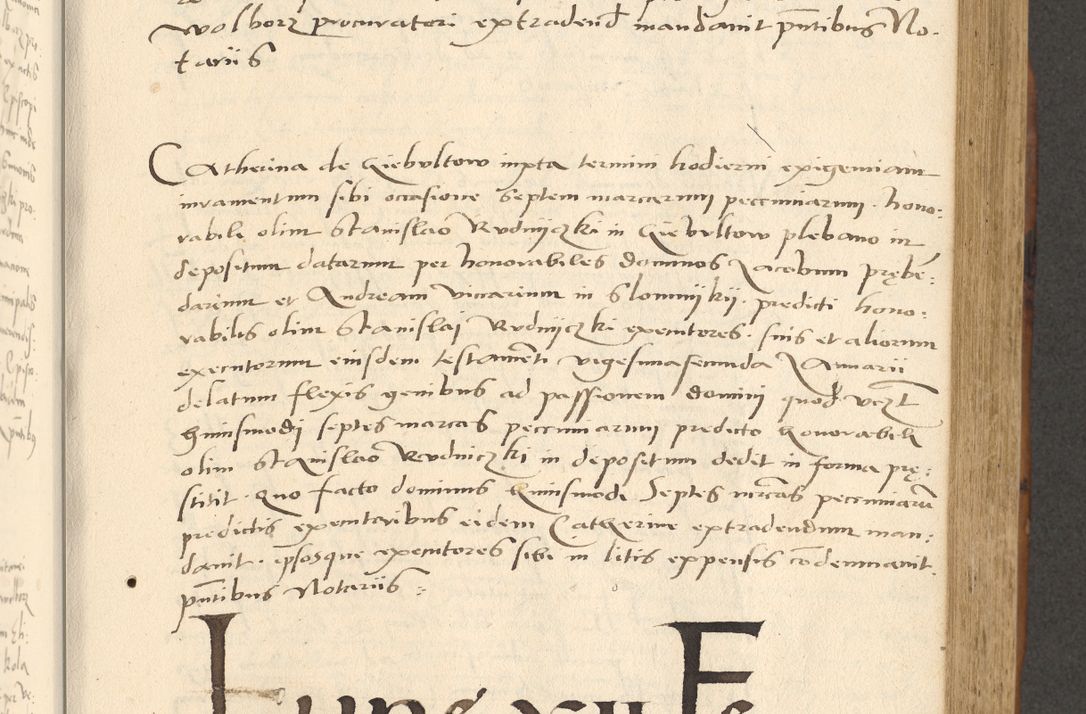 Wolborz procuratori extradend mandavit pntibus No-
tariis
Catherina de Giebvltow iuxta termini hodierni exigentiam
iuramentum sibi occasione septem marcarum pecuniarum. hono-
rabili olim Stanislao Rvdnyczki in Giebvltow plebano in
depositum datarum per honorabiles dominos Jacobum prębē-
darium et Andream viccarium in Slomnijkij. predicti hono-
rabilis olim Stanislaj Rvdnijczki executores. suis et aliorum
executorum eiusdem testamenti vigesimasecunda Januarii
delatum flexis genibus ad passionem domini quod vczt
huiusmodi septes marcas pecuniarum predicto honorabili
olim Stanislao Rvdniczki in depositum dedit in forma prę-
stitit. Quo facto dominus huiusmodi Septes mrcas pecuniarū
predictis executoribus eidem Catherine extradendum man-
davit. ipsosque executores sibi in litis expensis cōdemnavit.
pntibus Notariis